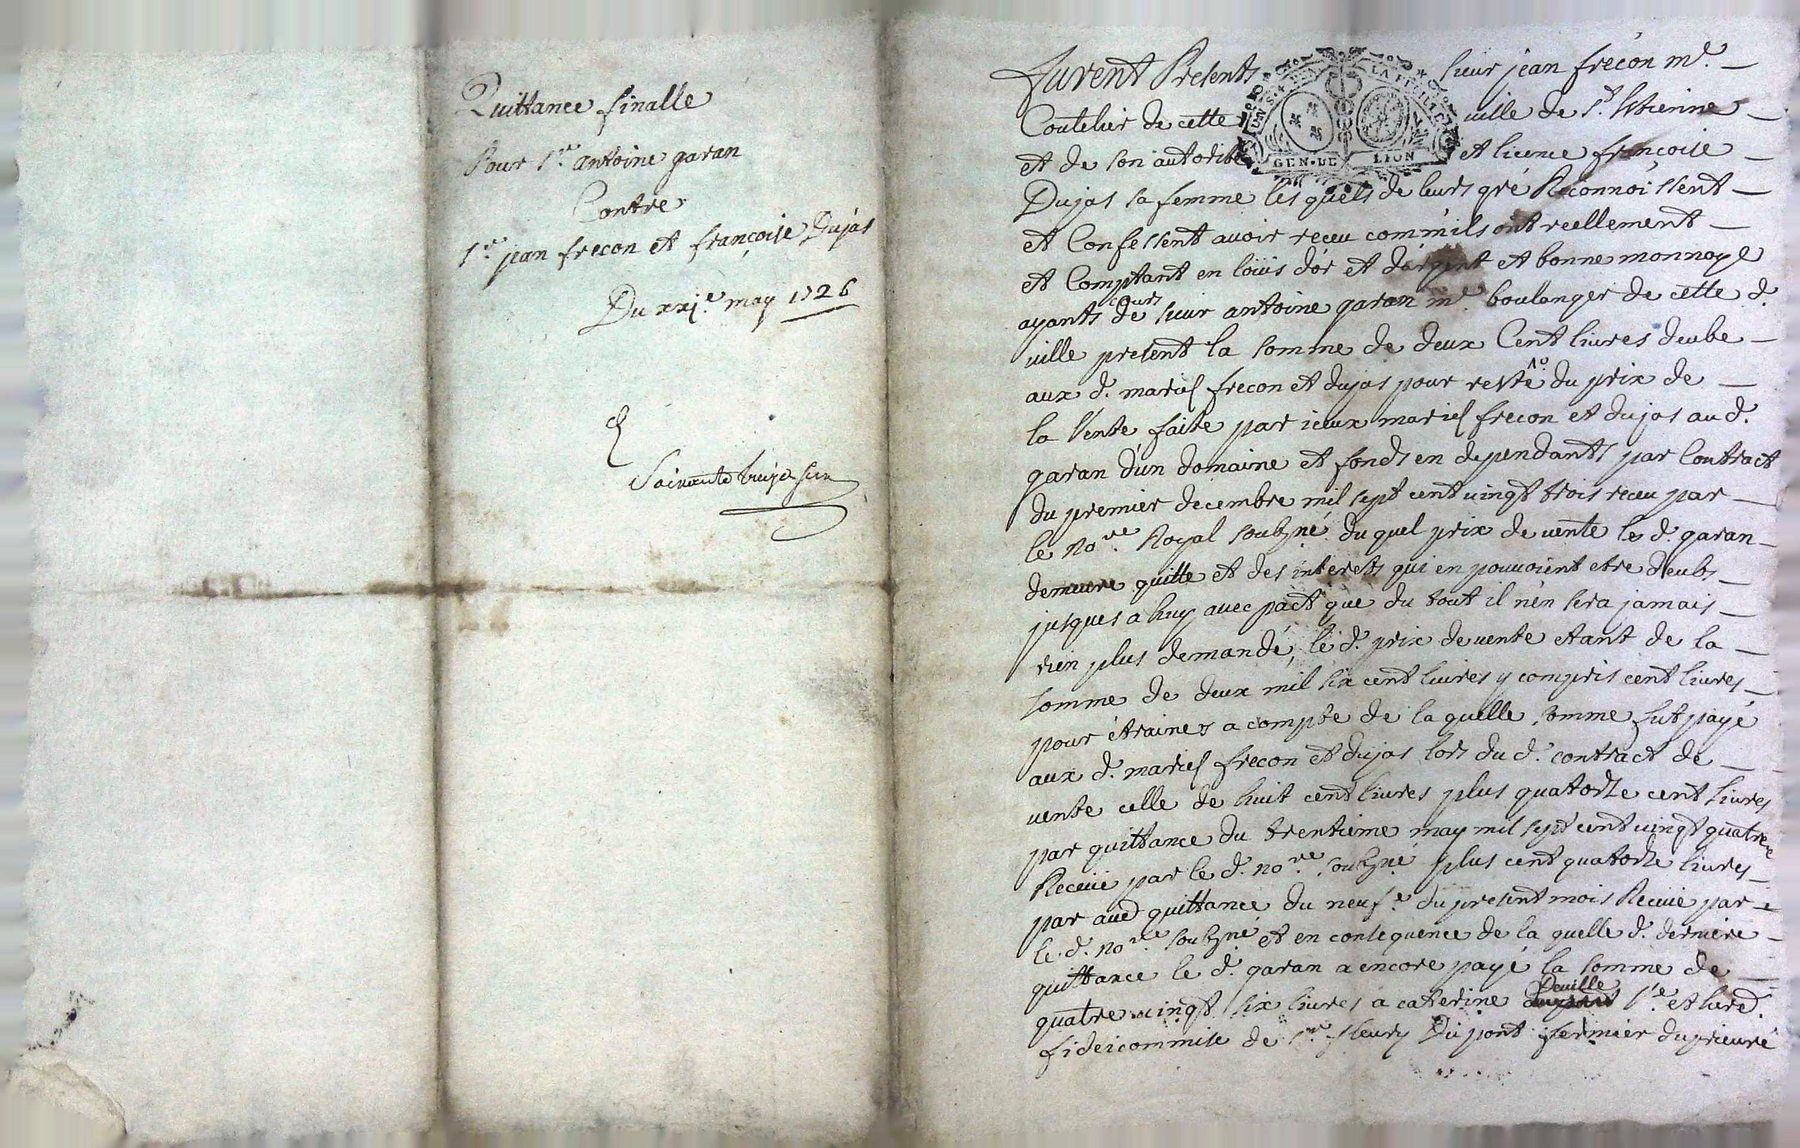 Quittance finalle
Pour s.r antoine garan
Contre
s.r jean frecon et françoise Dujas
Du xxj.e may 1726
Soixante treize
furent Presents sieur jean frecon m.e
Coutelier de cette ville de s.t Estienne
et de son autorité et licence françoise
Dujas sa femme lesquels de leurs gré Reconnoissent
et Confessent avoir receu comm'ils ont reellement
et Comptant en loüis d'or et d'argent et bonne monnoye
cours
ayants de sieur antoine garan m.e boulanger de cette d.
ville present la somme de deux Cent livres deube
aux d. mariés frecon et dujas pour reste du prix de
la Vente faite par iceux mariés frecon et dujas au d.
garan d'un domaine et fonds en dependants par Contract
du premier decembre mil sept cent vingt trois receu par
le no.re Royal soubzné du quel prix de vente les d. garan
demeure quitte et des interets qui en pouvoient etre deubs
jusques a huy avec pact que du tout il n'en sera jamais
rien plus demandé, le d. prix de vente etant de la
somme de deux mil six cent livres y compris cent livres
pour étraines a compte de laquelle somme fut payé
aux d. mariés frecon et dujas lors du d. contract de
vente celle de huit cent livres plus quatorze cent livres
par quittance du trentieme may mil sept cent vingt quatre
Receüe par le d. no.re soubzné plus cent quatorze livres
par aut quittance du neuf.e du present mois Receüe par
le d. no.re soubzné et en consequence de la quelle d. derniere
quittance le d. garan a encore payé la somme de
quatre vingt six livres a caterine Peuille et
fideicommise de s.r fleury Dupont fermier du prieuré
GEN·DE LION